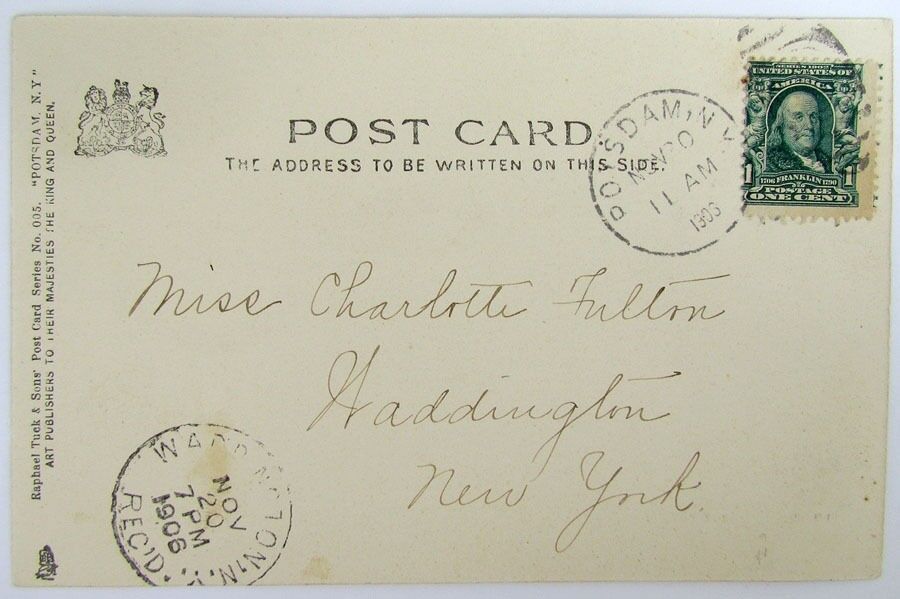 Raphael Tuck & Sons' Post Card Series No. 005. "POTSDAM, N. Y"
ART PUBLISHERS TO THEIR MAJESTIES THE KING AND QUEEN.
POST CARD
THE ADDRESS TO BE WRITTEN ON THIS SIDE.
POTSDAM, N.Y.
NOV 20
11 AM
1906
SERIES 1902
UNITED STATES OF
AMERICA
1706 FRANKLIN 1790
POSTAGE
1 1
ONE CENT
Miss Charlotte Fulton
Waddington
New York
WADDINGTON, N.Y.
NOV
20
7 PM
1906
REC'D.